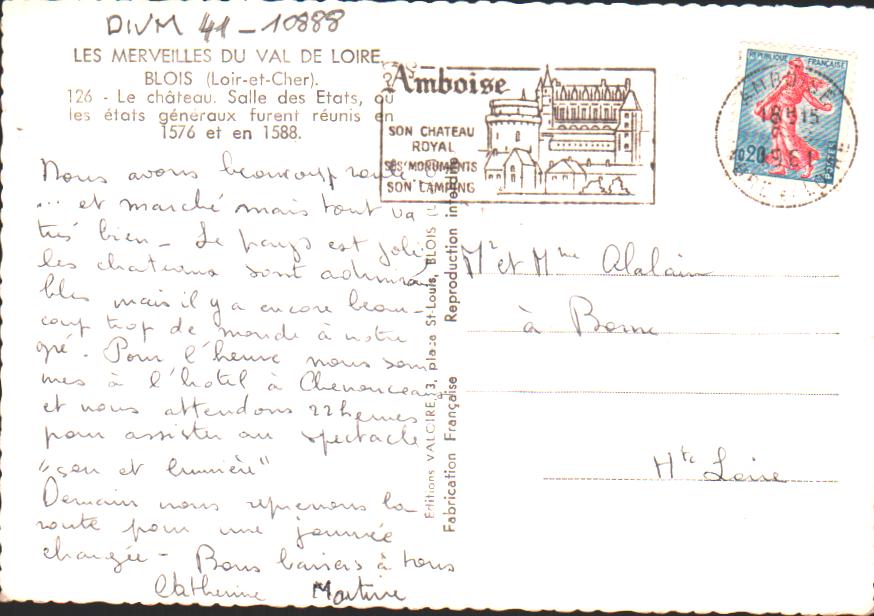 DIVM 41-10888
LES MERVEILLES DU VAL DE LOIRE
BLOIS (Loir-et-Cher).
126 - Le château. Salle des Etats, où
les états généraux furent réunis en
1576 et en 1588.
Nous avons beaucoup roulé
... et marché mais tout va
très bien - Le pays est joli,
les chateaux sont admira
bles mais il y a encore beau-
coup trop de monde à notre
gré. Pour l'heure nous som
mes à l'hotel à Chenonceau
et nous attendons 22 heures
pour assister au spectacle
"son et lumière"
Demain nous reprenons la
route pour une journée
chargée - Bons baisers à tous
Catherine Martine
Editions VALOIRE, 3, place St-Louis, BLOIS
Fabrication Française Reproduction interdite
Amboise
SON CHATEAU
ROYAL
SES MONUMENTS
SON CAMPING
REPUBLIQUE FRANÇAISE
0,20
POSTES
AMBOISE
18H15
1961
INDRE ET LOIRE
Mr et Mme Alalain
à Borne
Hte Loire